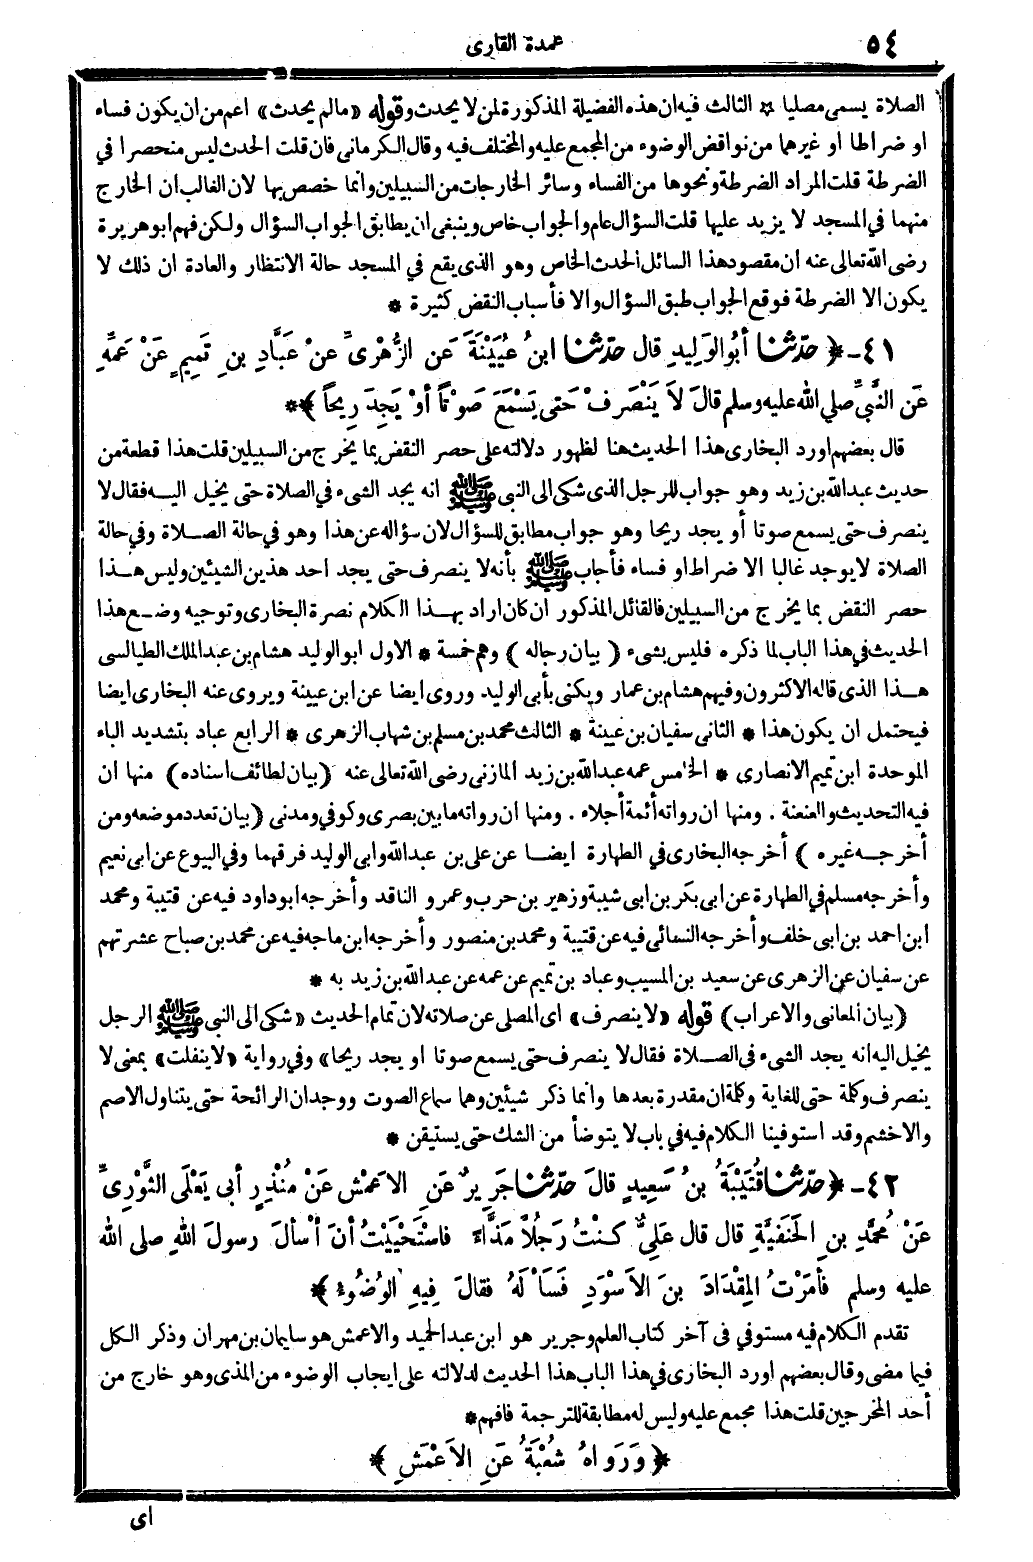 ٥٤
عمدة القارى
الصلاة يسمى مصليا * الثالث فيه ان هذه الفضيلة المذكورة لمن لا يحدث وقوله «مالم يحدث» اعم من ان يكون فساء
او ضراطا او غيرهما من نواقض الوضوء من المجمع عليه والمختلف فيه وقال الكرمانى فان قلت الحدث ليس منحصرا في
الضرطة قلت المراد الضرطة ونحوها من الفساء وسائر الخارجات من السبيلين وانما خصص بها لان الغالب ان الخارج
منهما في المسجد لا يزيد عليها قلت السؤال عام والجواب خاص وينبغى ان يطابق الجواب السؤال ولكن فهم ابو هريرة
رضى الله تعالى عنه ان مقصود هذا السائل الحدث الخاص وهو الذى يقع في المسجد حالة الانتظار والعادة ان ذلك لا
يكون الا الضرطة فوقع الجواب طبق السؤال والا فأسباب النقض كثيرة *
٤١ - ﴿ حَدَّثَنَا أَبُو الوَلِيدِ قال حَدَّثَنَا ابنُ عُيَيْنَةَ عَنِ الزُّهْرِىِّ عنْ عَبَّادِ بنِ تَمِيمٍ عَنْ عَمِّهِ
عَنِ النَّبىِّ صلى الله عليه وسلم قالَ لاَ يَنْصَرِفْ حَتى يَسْمَعَ صَوْتاً أوْ يَجِدَ رِيحاً ﴾ *
قال بعضهم اورد البخارى هذا الحديث هنا لظهور دلالته على حصر النقض بما يخرج من السبيلين قلت هذا قطعة من
حديث عبدالله بن زيد وهو جواب للرجل الذى شكى الى النبى ﷺ انه يجد الشىء في الصلاة حتى يخيل اليه فقال لا
ينصرف حتى يسمع صوتا أو يجد ريحا وهو جواب مطابق للسؤال لان سؤاله عن هذا وهو في حالة الصلاة وفي حالة
الصلاة لا يوجد غالبا الا ضراط او فساء فأجاب ﷺ بأنه لا ينصرف حتى يجد احد هذين الشيئين وليس هذا
حصر النقض بما يخرج من السبيلين فالقائل المذكور ان كان اراد بهذا الكلام نصرة البخارى وتوجيه وضع هذا
الحديث في هذا الباب لما ذكره فليس بشىء ( بيان رجاله ) وهم خمسة * الاول ابو الوليد هشام بن عبد الملك الطيالسى
هذا الذى قاله الاكثرون وفيهم هشام بن عمار ويكنى بأبى الوليد وروى ايضا عن ابن عيينة ويروى عنه البخارى ايضا
فيحتمل ان يكون هذا * الثانى سفيان بن عيينة * الثالث محمد بن مسلم بن شهاب الزهرى * الرابع عباد بتشديد الباء
الموحدة ابن تميم الانصارى * الخامس عمه عبدالله بن زيد المازنى رضى الله تعالى عنه (بيان لطائف اسناده ) منها ان
فيه التحديث والعنعنة . ومنها ان رواته أئمة أجلاء . ومنها ان رواته ما بين بصرى وكوفي ومدنى (بيان تعدد موضعه ومن
أخرجه غيره ) أخرجه البخارى في الطهارة ايضا عن على بن عبدالله وابى الوليد فرقهما وفي البيوع عن ابى نعيم
وأخرجه مسلم في الطهارة عن ابى بكر بن ابى شيبة وزهير بن حرب وعمرو الناقد وأخرجه ابو داود فيه عن قتيبة ومحمد
ابن احمد بن ابى خلف وأخرجه النسائى فيه عن قتيبة ومحمد بن منصور وأخرجه ابن ماجه فيه عن محمد بن صباح عشرتهم
عن سفيان عن الزهرى عن سعيد بن المسيب وعباد بن تميم عن عمه عن عبدالله بن زيد به *
(بيان المعانى والاعراب) قوله «لا ينصرف» اى المصلى عن صلاته لان تمام الحديث «شكى الى النبى ﷺ الرجل
يخيل اليه انه يجد الشىء في الصلاة فقال لا ينصرف حتى يسمع صوتا او يجد ريحا» وفي رواية «لا ينفلت» بمعنى لا
ينصرف وكلمة حتى للغاية وكلمة ان مقدرة بعدها وانما ذكر شيئين وهما سماع الصوت ووجدان الرائحة حتى يتناول الاصم
والاخشم وقد استوفينا الكلام فيه في باب لا يتوضأ من الشك حتى يستيقن *
٤٢ - ﴿ حَدَّثَنَا قُتَيْبَةُ بنُ سَعِيدٍ قالَ حَدَّثَنَا جَرِيرٌ عَنِ الاَعْمَشِ عَنْ مُنْذِرٍ أبى يَعْلَى الثَّوْرِىِّ
عَنْ مُحَمَّدِ بنِ الحَنَفِيَّةِ قال قال عَلِىٌّ كُنْتُ رَجُلاً مَذَّاءً فاسْتَحْيَيْتُ أنْ أسْألَ رسولَ اللهِ صلى الله
عليه وسلم فأمَرْتُ المِقْدَادَ بنَ الأَسْوَدِ فَسَألَهُ فقالَ فِيهِ الوُضُوءُ ﴾ *
تقدم الكلام فيه مستوفى فى آخر كتاب العلم وجرير هو ابن عبد الحميد والاعمش هو سليمان بن مهران وذكر الكل
فيما مضى وقال بعضهم اورد البخارى في هذا الباب هذا الحديث لدلالته على ايجاب الوضوء من المذى وهو خارج من
أحد المخرجين قلت هذا مجمع عليه وليس له مطابقة للترجمة فافهم *
﴿ وَرَوَاهُ شُعْبَةُ عَنِ الاَعْمَشِ ﴾ *
اى